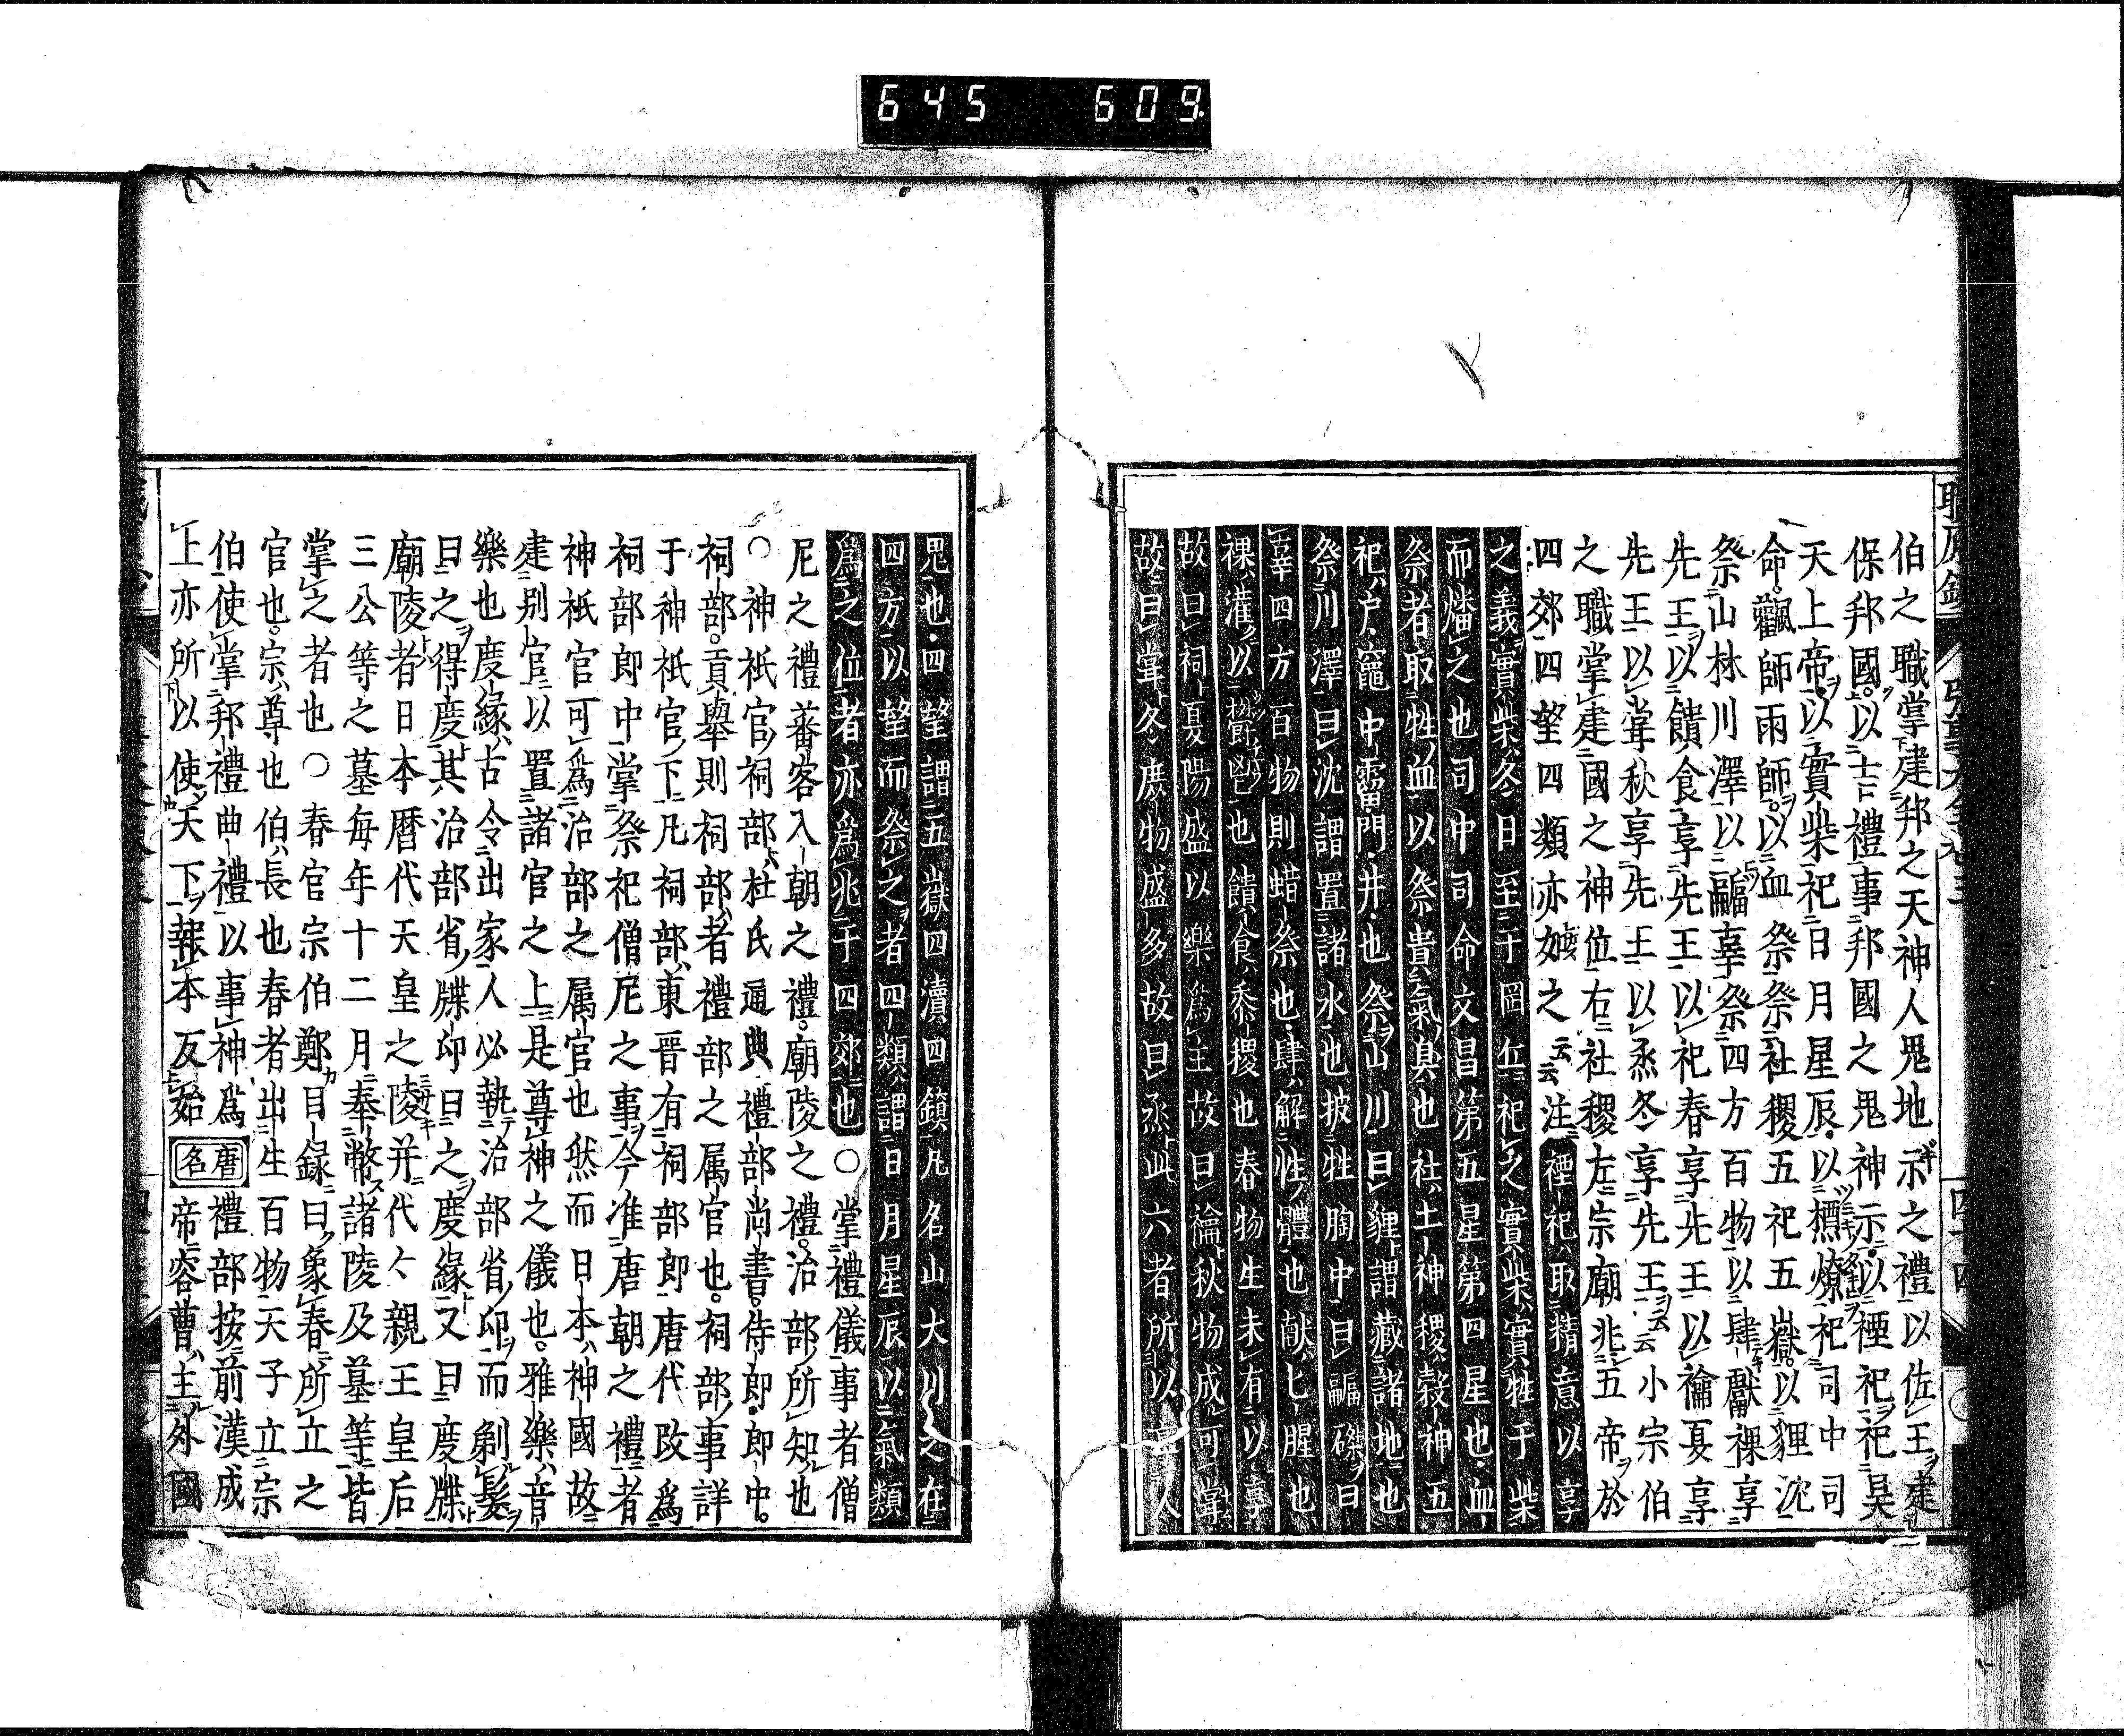 645 609
伯之職掌建邦之天神人鬼地示之禮以佐王建
保邦國以吉禮事邦國之鬼神示以禋祀祀昊
天上帝以實柴祀日月星辰以槱燎祀司中司
命飌師雨師以血祭祭社稷五祀五嶽以貍沈
祭山林川澤以疈辜祭四方百物以肆獻祼享
先王以饋食享先王以祀春享先王以禴夏享
先王以嘗秋享先王以烝冬享先王云云小宗伯
之職掌建國之神位右社稷左宗廟兆五帝於
四郊四望四類亦如之云云注禋祀取精意以享
之義實柴冬日至于圜丘祀之實柴實牲于柴
而燔之也司中司命文昌第五星第四星也血
祭者取牲血以祭貴氣臭也社土神稷穀神五
祀户竈中霤門井也祭山川曰貍謂藏諸地也
祭川澤曰沈謂置諸水也披牲胸中曰疈磔曰
辜四方百物則蜡祭也肆解牲體也献匕腥也
祼灌以鬱鬯也饋食黍稷也春物生未有以享
故曰祠夏陽盛以樂爲主故曰禴秋物成可嘗
故曰嘗冬庶物盛多故曰烝此六者所以人
鬼也四望謂五嶽四瀆四鎮凡名山大川之在
四方以望而祭之者四類謂日月星辰以氣類
爲之位者亦爲兆于四郊也○掌禮儀事者僧
尼之禮蕃客入朝之禮廟陵之禮治部所知也
○神祇官祠部杜氏通典禮部尚書侍郎郎中
祠部貢舉則祠部者禮部之属官也祠部事詳
于神祇官下凡祠部東晋有祠部郎唐代改爲
祠部郎中掌祭祀僧尼之事今准唐朝之禮者
神祇官可爲治部之属官也然而日本神國故
建别官以置諸官之上是尊神之儀也雅樂音
樂也慶緣古令出家人必執治部省印而剃髪
曰之得度其治部省牒印曰之慶緣又曰度牒
廟陵者日本暦代天皇之陵并代々親王皇后
三公等之墓毎年十二月奉幣諸陵及墓等皆
掌之者也○春官宗伯鄭目録曰象春所立之
官也宗尊也伯長也春者出生百物天子立宗
伯使掌邦禮曲禮以事神爲
上亦所以使天下報本反始唐名禮部按前漢成
帝容曹主外國